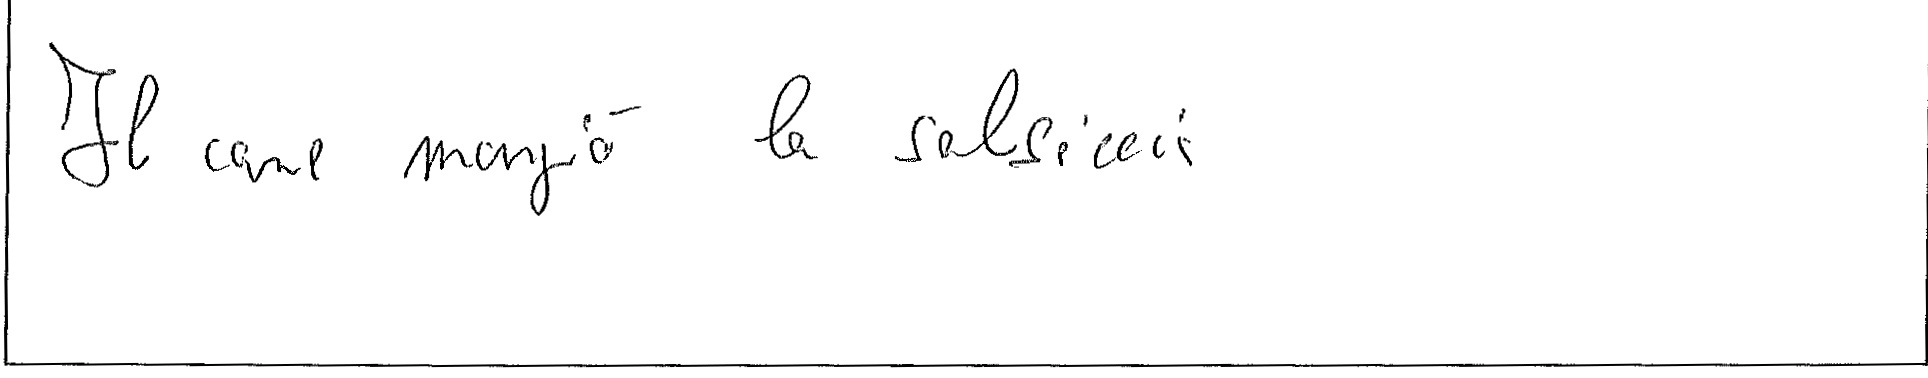 Il cane mangiò la salsiccia